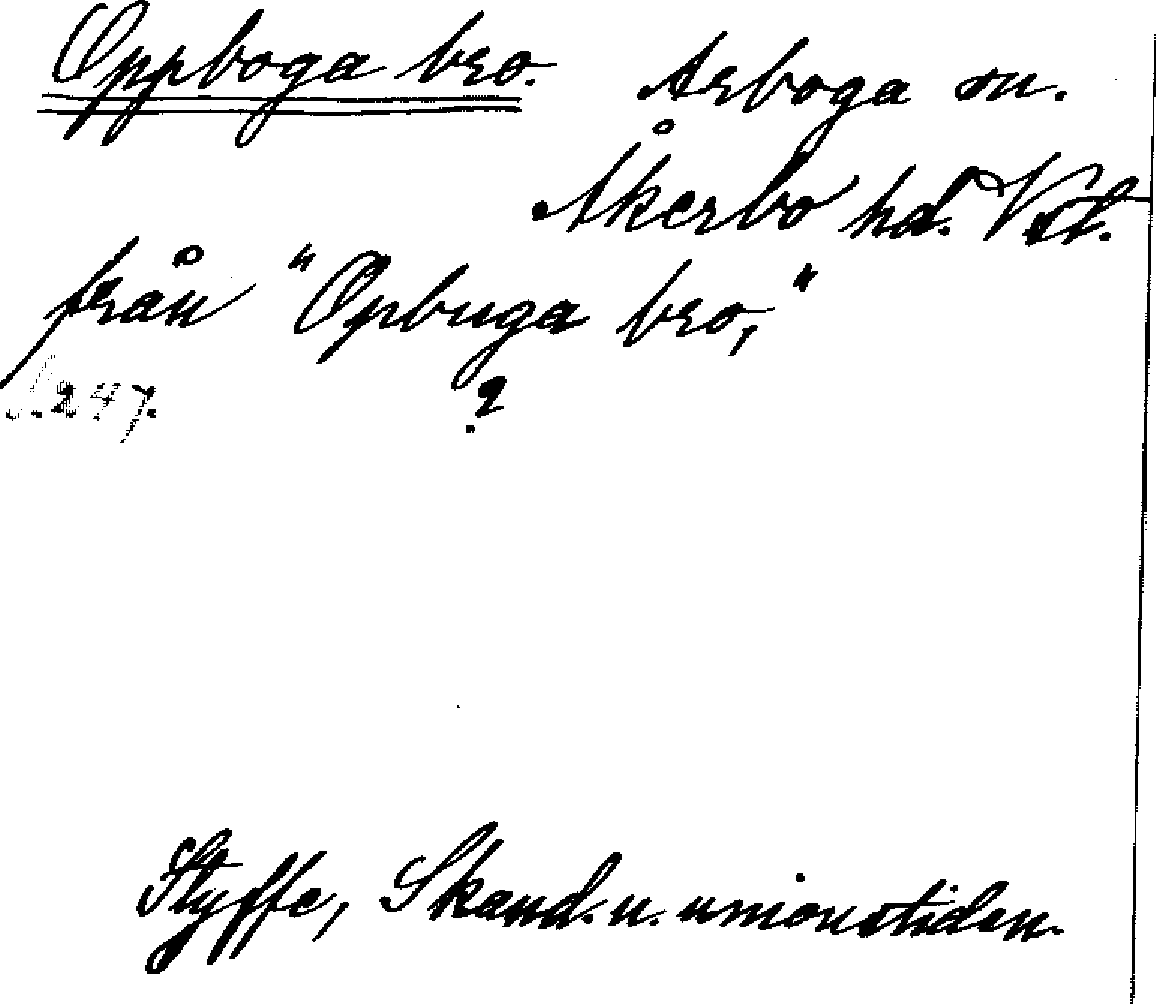 Oppboga bro. Arboga sn.
Åkerbo hd. Vstl.
från "Opbuga bro,"
S. 247. ?
Styffe, Skand. u. unionstiden.